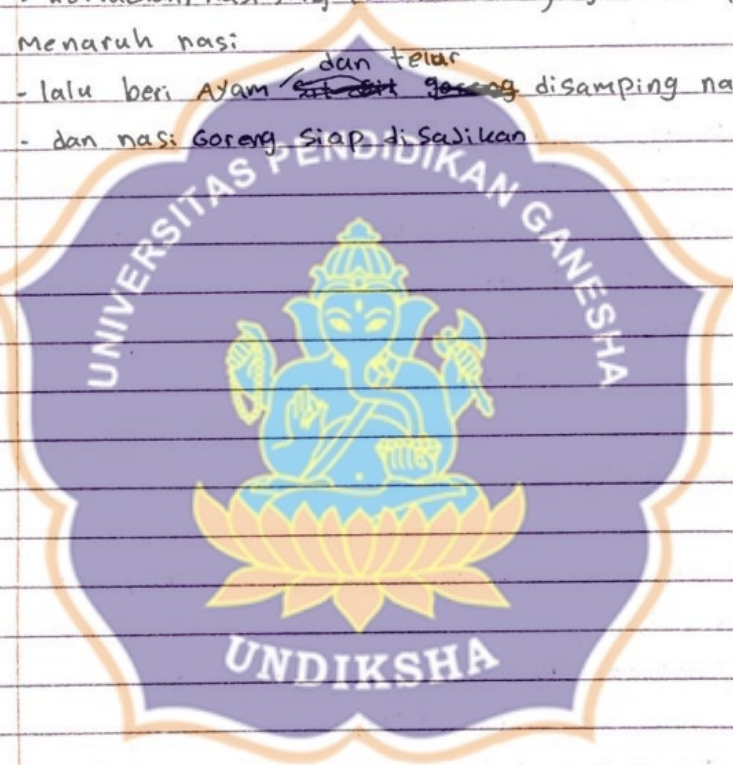 Menaruh nasi
dan telur
- lalu beri Ayam disamping
- dan nasi Goreng siap disajikan
UNIVERSITAS PENDIDIKAN GANESHA
UNDIKSHA